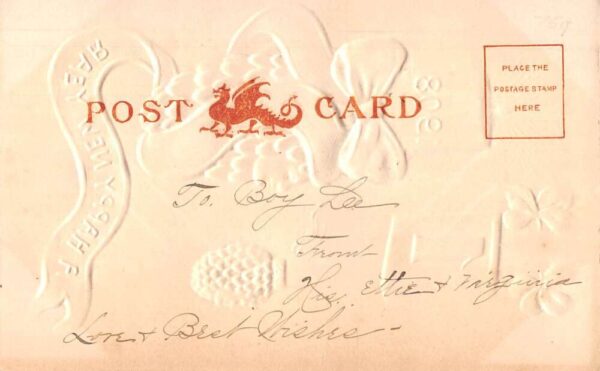 POST CARD
PLACE THE
POSTAGE STAMP
HERE
A HAPPY NEW YEAR
To. Boy Lee
From
Kis. Ettie & Virginia
Love & Best Wishes -